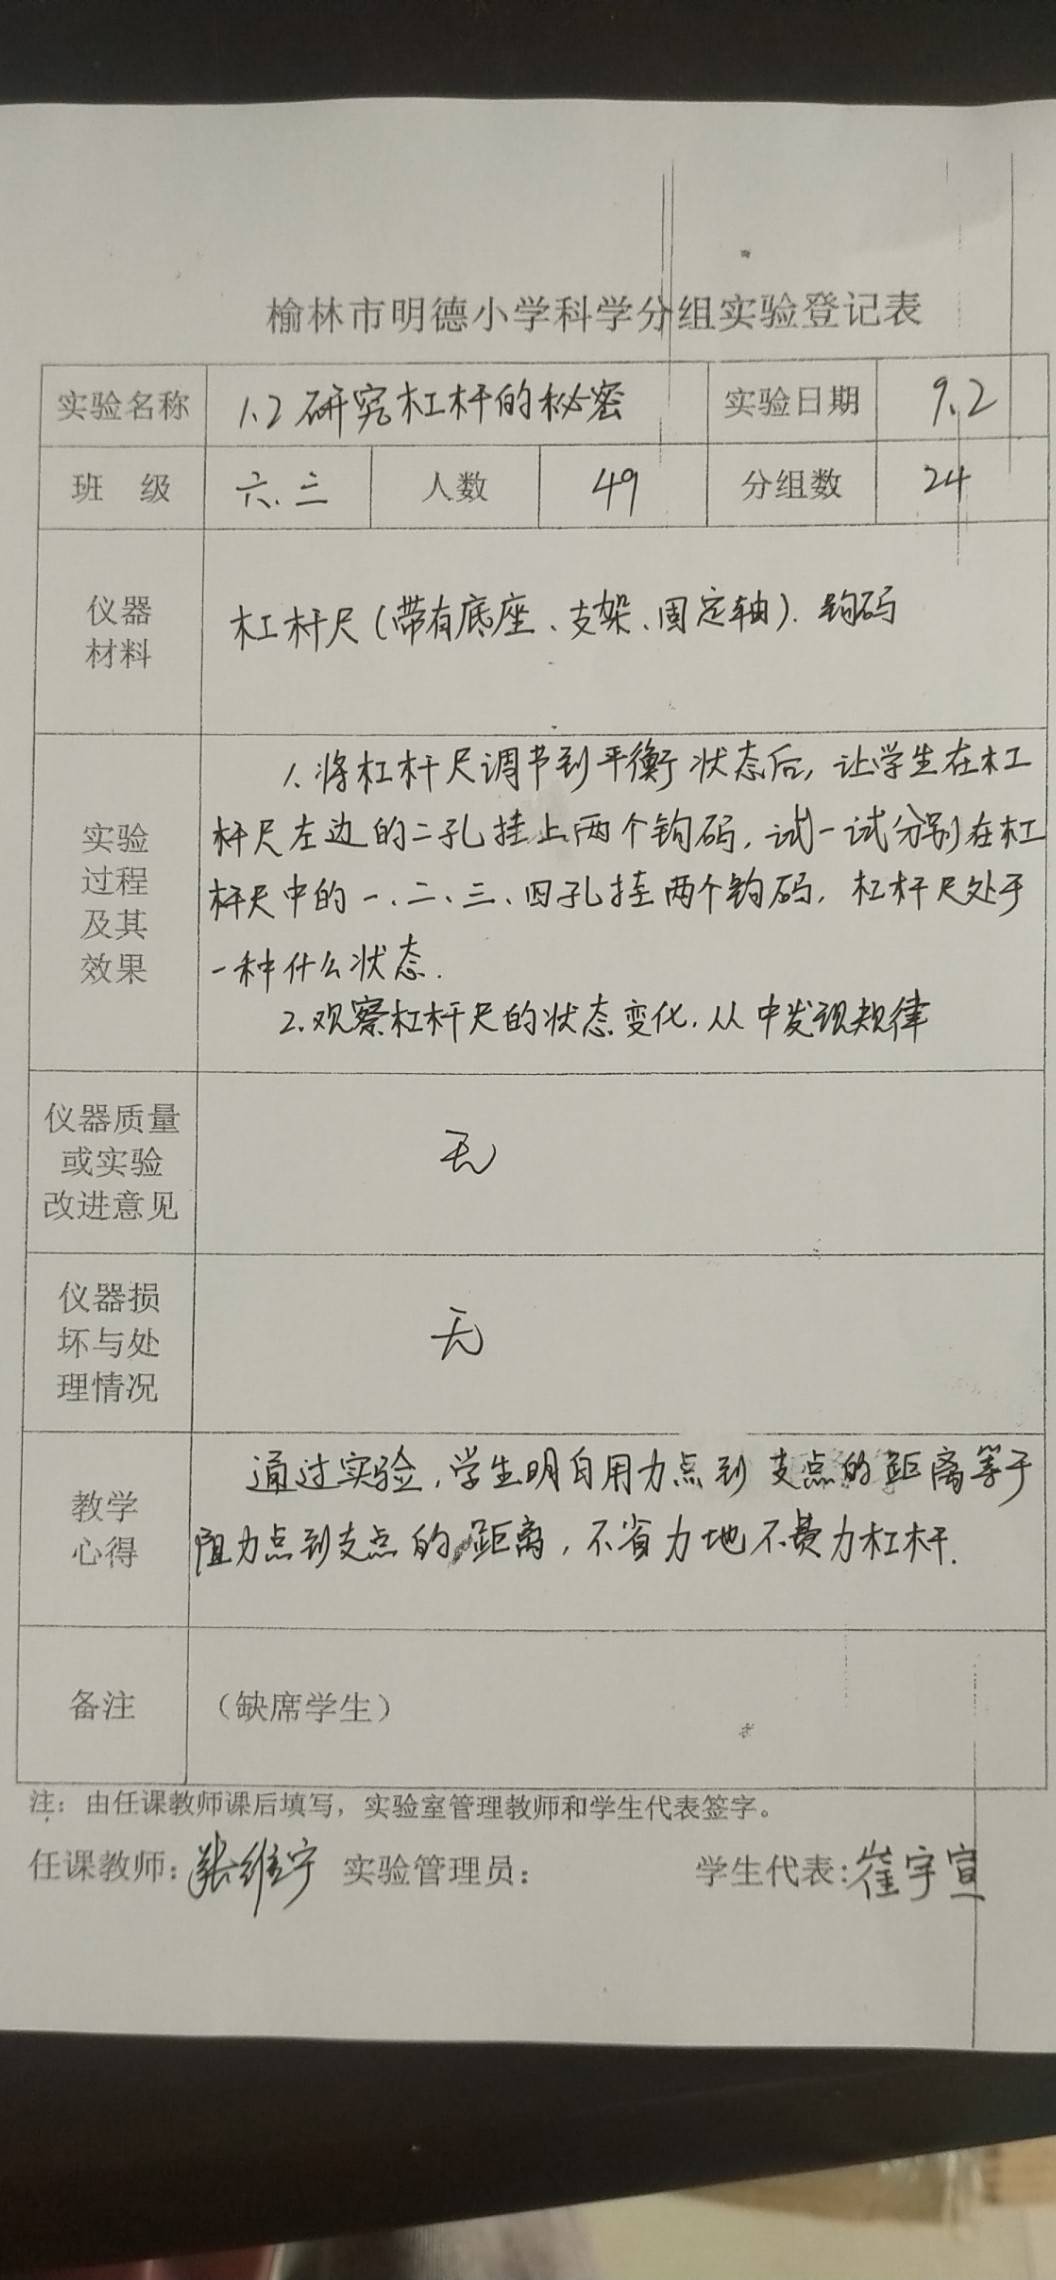 榆林市明德小学科学分组实验登记表
实验名称 1.2 研究杠杆的秘密 实验日期 9.2
班 级 六.三 人数 49 分组数 24
仪器
材料
杠杆尺(带有底座、支架、固定轴).钩码
实验
过程
及其
效果
1.将杠杆尺调节到平衡状态后,让学生在杠
杆尺左边的二孔挂上两个钩码,试一试分别在杠
杆尺中的一、二、三、四孔挂两个钩码,杠杆尺处于
一种什么状态.
2.观察杠杆尺的状态变化.从中发现规律
仪器质量
或实验
改进意见
无
仪器损
坏与处
理情况
无
教学
心得
通过实验,学生明白用力点到支点的距离等于
阻力点到支点的距离,不省力地不费力杠杆.
备注 (缺席学生)
注：由任课教师课后填写，实验室管理教师和学生代表签字。
任课教师:张维宁 实验管理员: 学生代表:崔宇宣